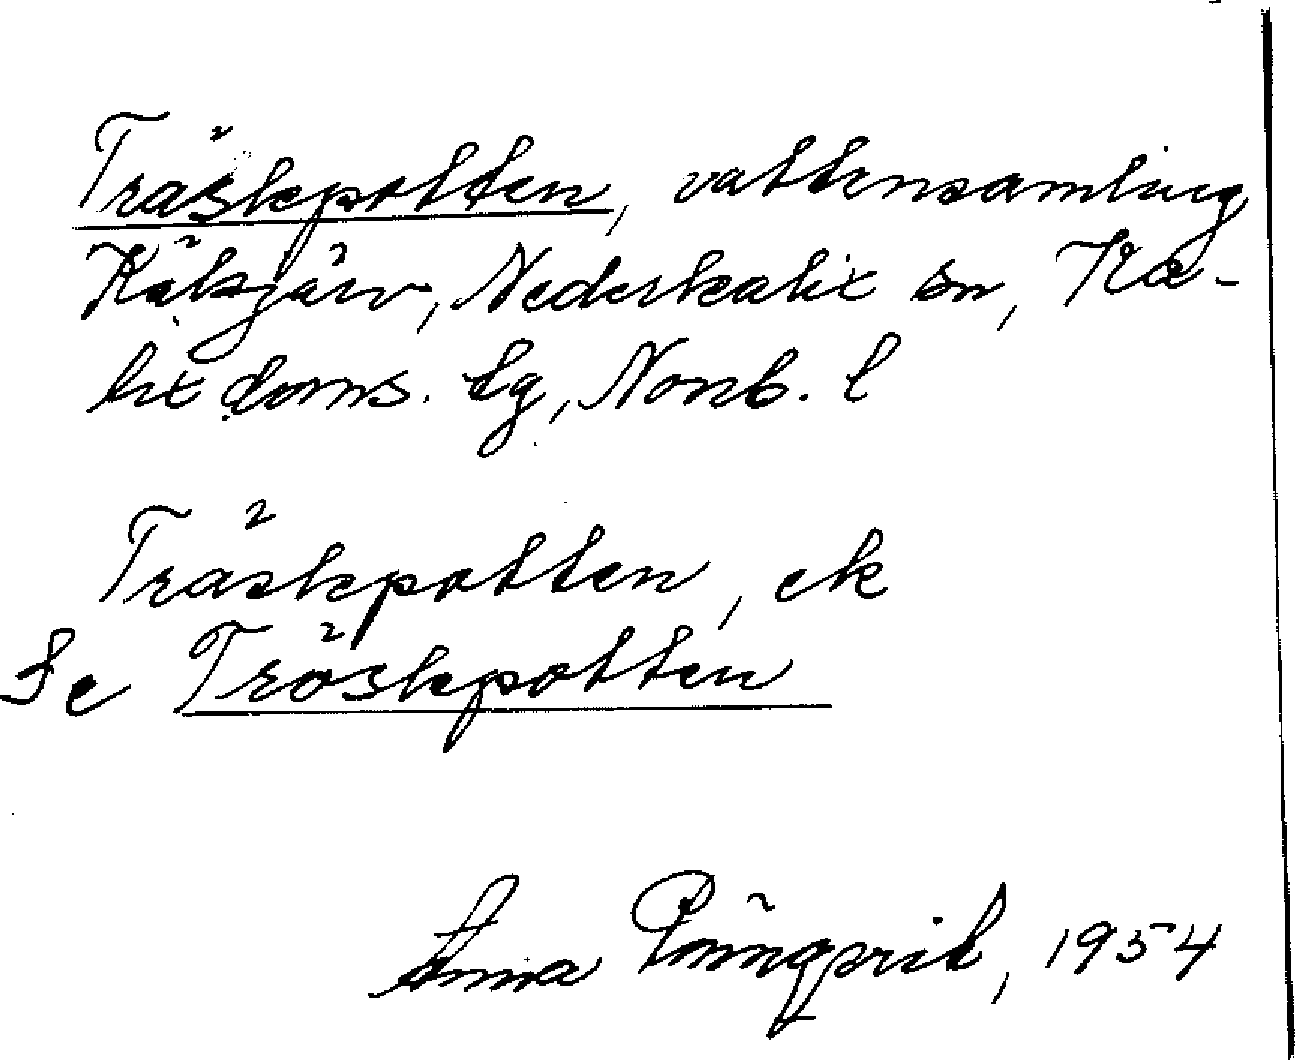 Träskpotten, vattensamling
Räktjärv, Nederkalix sn, Ka-
lix doms. tg, Norrb. l
Träskpotten, ek
Se Tröskpotten
Anna 1954